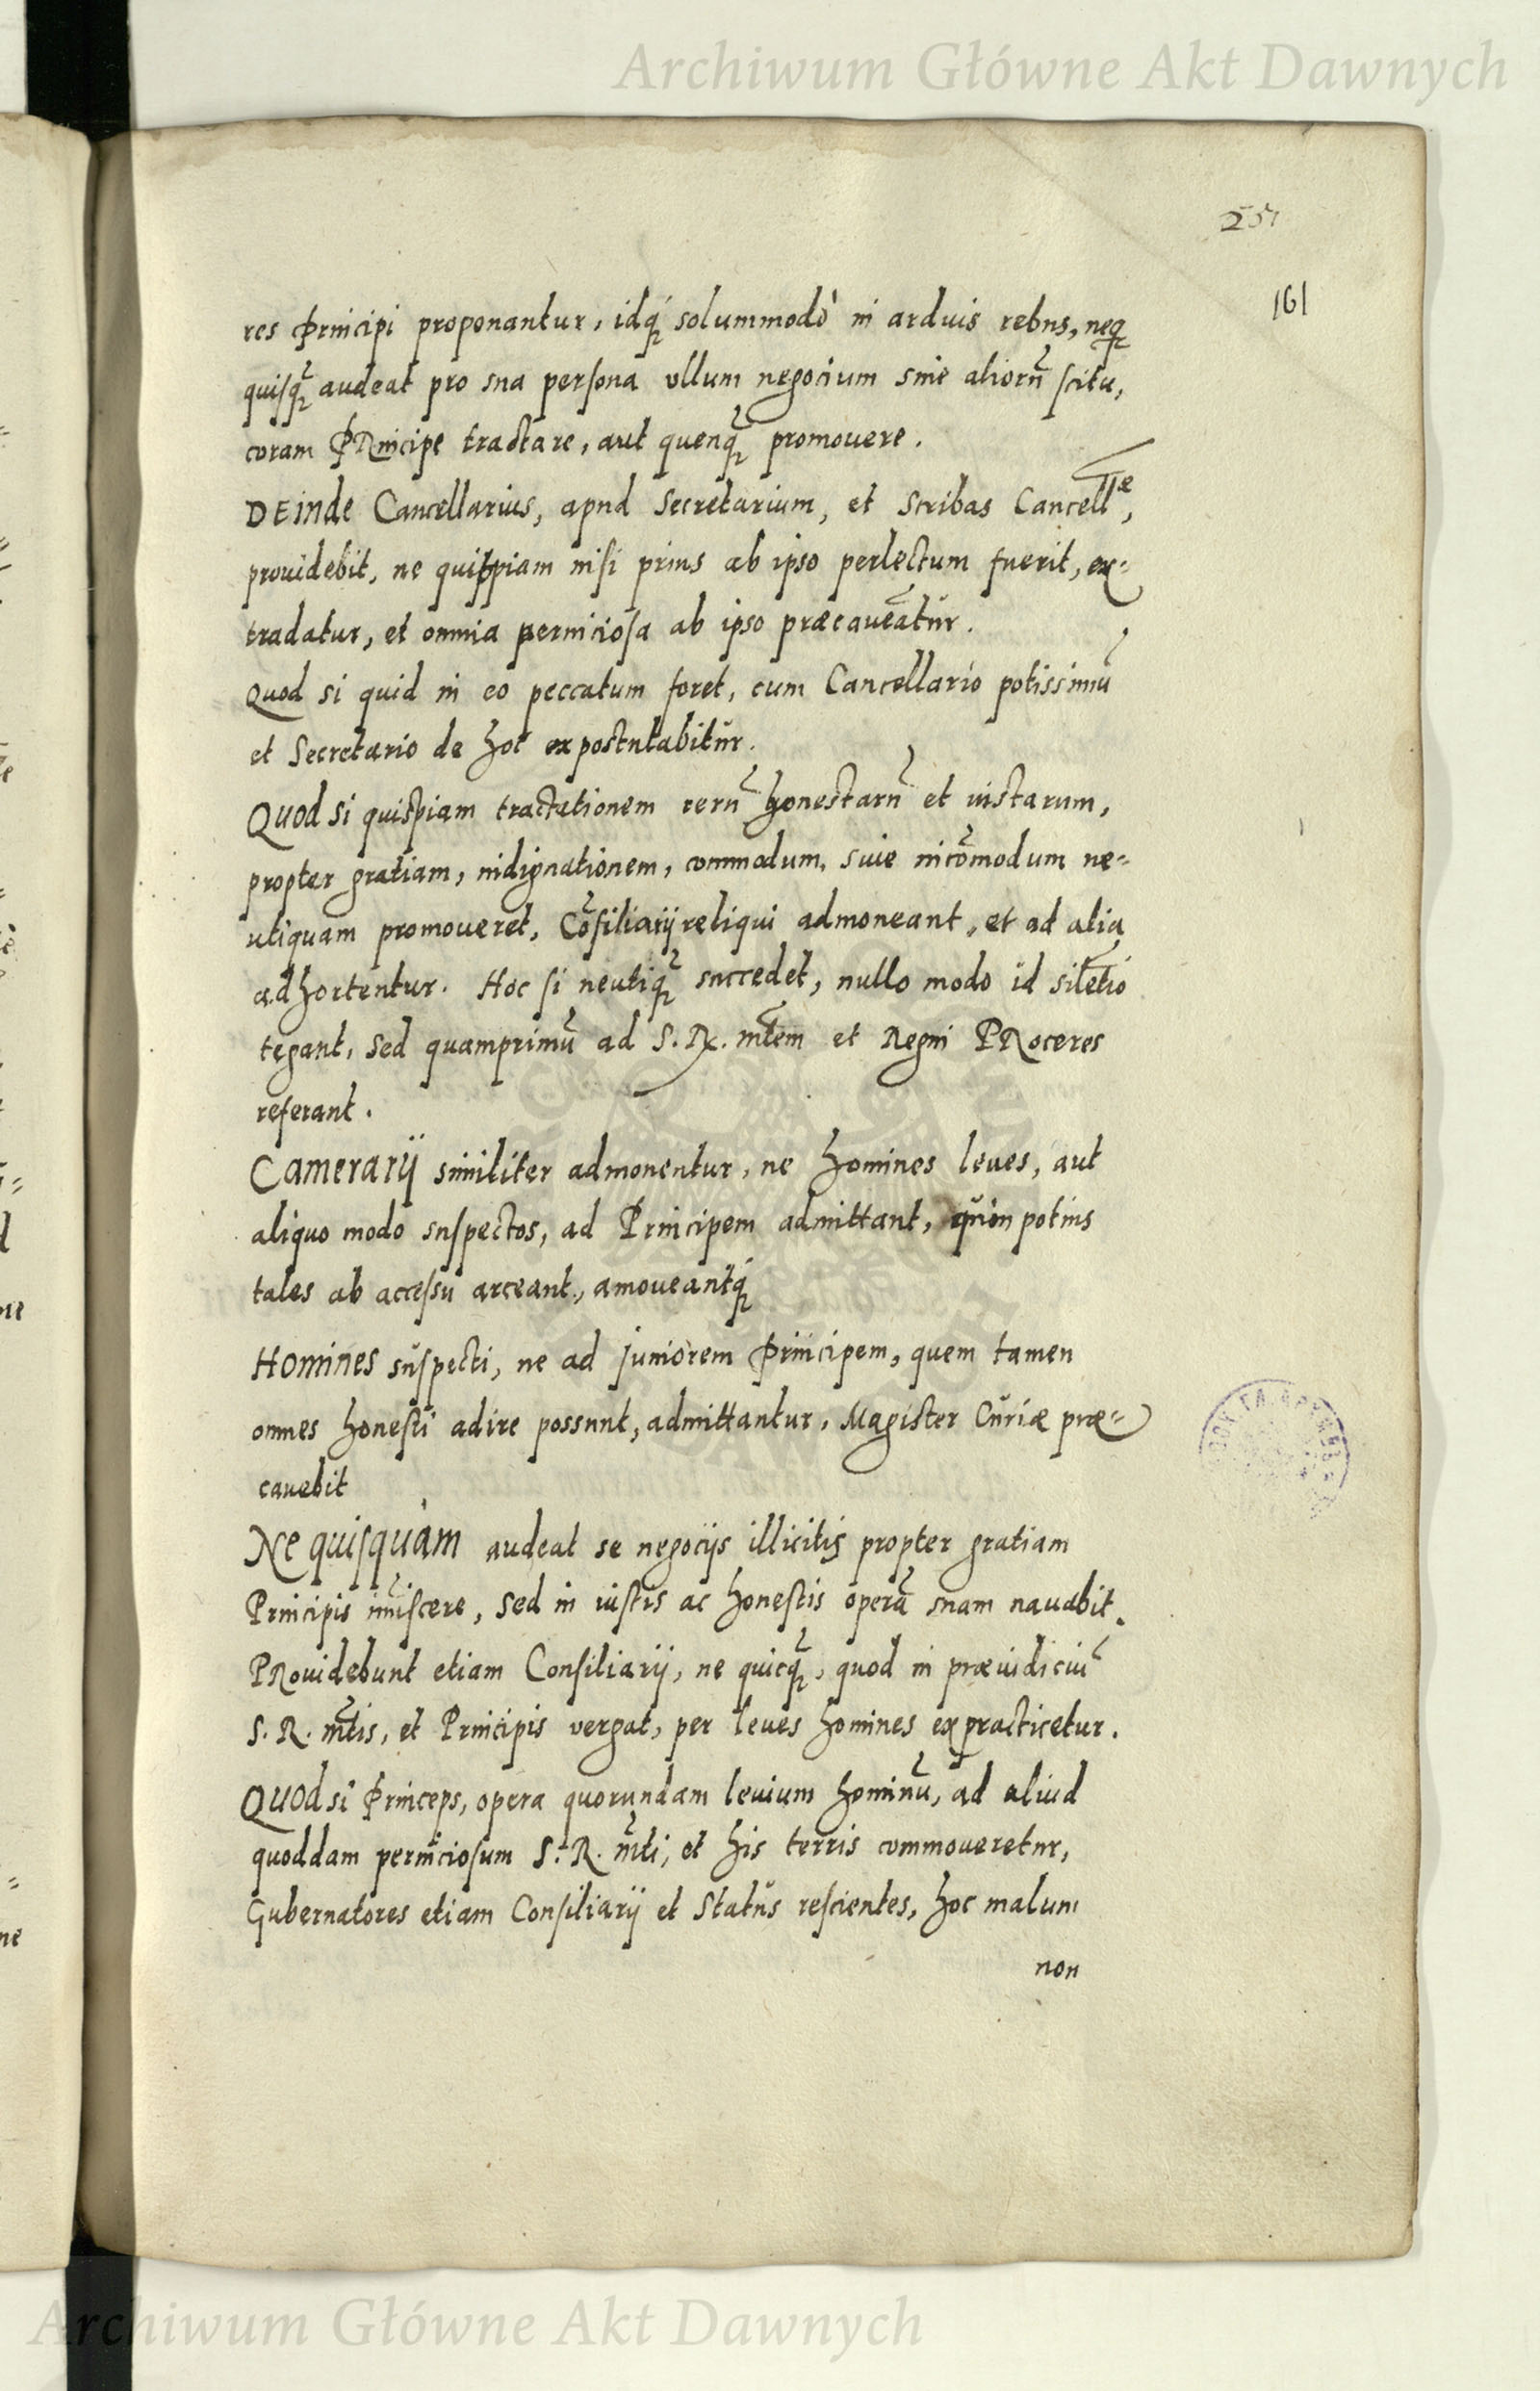 Archiwum Główne Akt Dawnych
251
161
res Principi proponantur, idq́ solummodò in arduis rebus, neq
quisq̃ audeat pro sua persona ullum negocium sine aliorũ scitu,
coram PRincipe tractare, aut quenq̃ promouere.
DEinde Cancellarius, apud Secretarium, et Scribas Cancellæ,
prouidebit, ne quippiam nisi prius ab ipso perlectum fuerit, ex=
tradatur, et omnia perniciosa ab ipso præcaueãtur.
Quod si quid in eo peccatum foret, cum Cancellario potissimũ
et Secretario de hoc expostulabitur.
QUOD si quispiam tractationem rerũ honestarũ et iustarum,
propter gratiam, indignationem, commodum, siue incõmodum ne=
utiquam promoueret, Cõsiliarij reliqui admoneant, et ad alia
adhortentur. Hoc si neutiq̃ succedet, nullo modo id silẽtio
tegant, sed quamprimũ ad S. R. mtem et Regni PRoceres
referant.
Camerarij similiter admonentur, ne homines leues, aut
aliquo modo suspectos, ad Principem admittant, quin potius
tales ab accessu arceant, amoueantq́
Homines suspecti, ne ad juniorem Principem, quem tamen
omnes honesti adire possunt, admittantur, Magister Curiæ præ=
cauebit
Ne quisquam audeat se negocijs illicitis propter gratiam
Principis im̃iscere, sed in iustis ac honestis operã suam nauabit.
PRouidebunt etiam Consiliarij, ne quicq̃, quod in præiudiciũ
S. R. mtis, et Principis vergat, per leues homines expracticetur.
QUOD si Princeps, opera quorundam leuium hominũ, ad aliud
quoddam perniciosum S. R. mti, et his terris commoueretur,
Gubernatores etiam Consiliarij et Status rescientes, hoc malum
non
Archiwum Główne Akt Dawnych